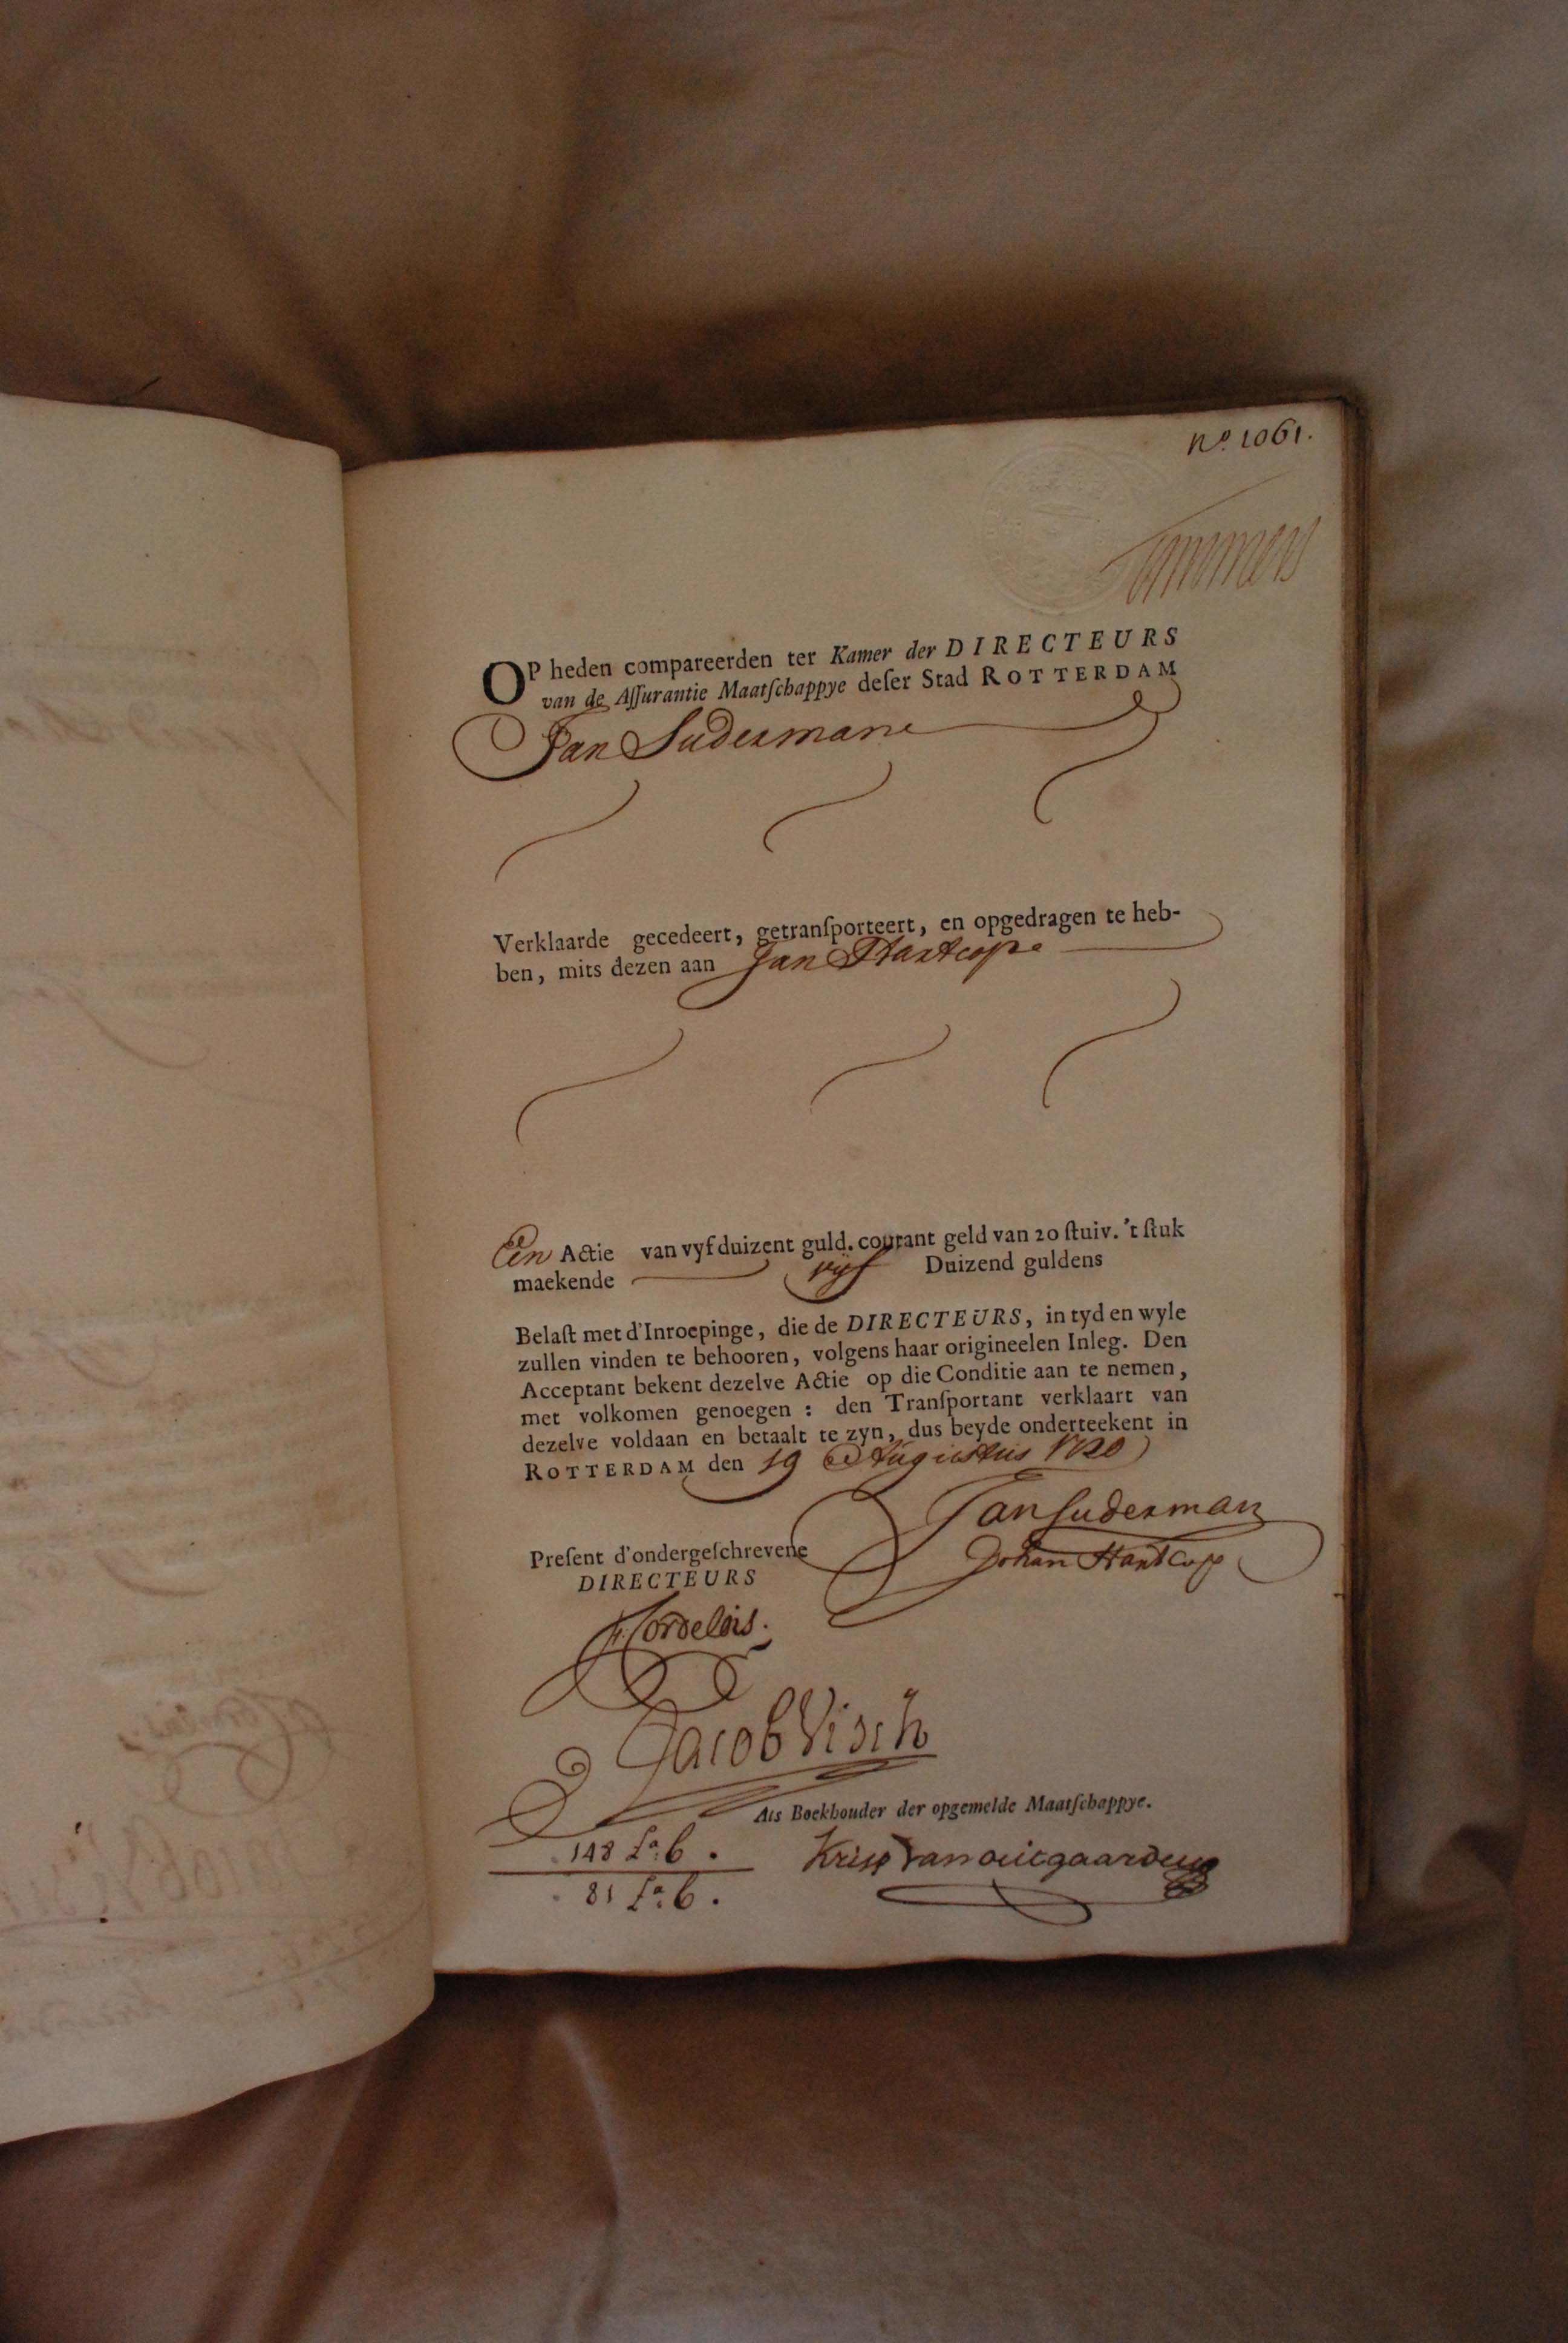 No. 1061.
OP heden compareerden ter Kamer der DIRECTEURS
van de Aſſurantie Maatſchappye deſer Stad ROTTERDAM
Jan Sudermann
Verklaarde gecedeert, getranſporteert, en opgedragen te heb-
ben, mits dezen aan Jan Hartcop
Een Actie van vyfduizent guld. courant geld van 20 ſtuiv. 't ſtuk
maekende vyf Duizend guldens
Belaſt met d'Inroepinge, die de DIRECTEURS, in tyd en wyle
zullen vinden te behooren, volgens haar origineelen Inleg. Den
Acceptant bekent dezelve Actie op die Conditie aan te nemen,
met volkomen genoegen : den Tranſportant verklaart van
dezelve voldaan en betaalt te zyn, dus beyde onderteekent in
ROTTERDAM den 19 Augustus 1720
Jan Suderman
Johan Hartcop
Preſent d'ondergeſchrevene
DIRECTEURS
Cordelois.
Jacob Visch
Als Boekhouder der opgemelde Maatſchappye.
148 La: b.
Kriſp van outgaarden
81 La: b.